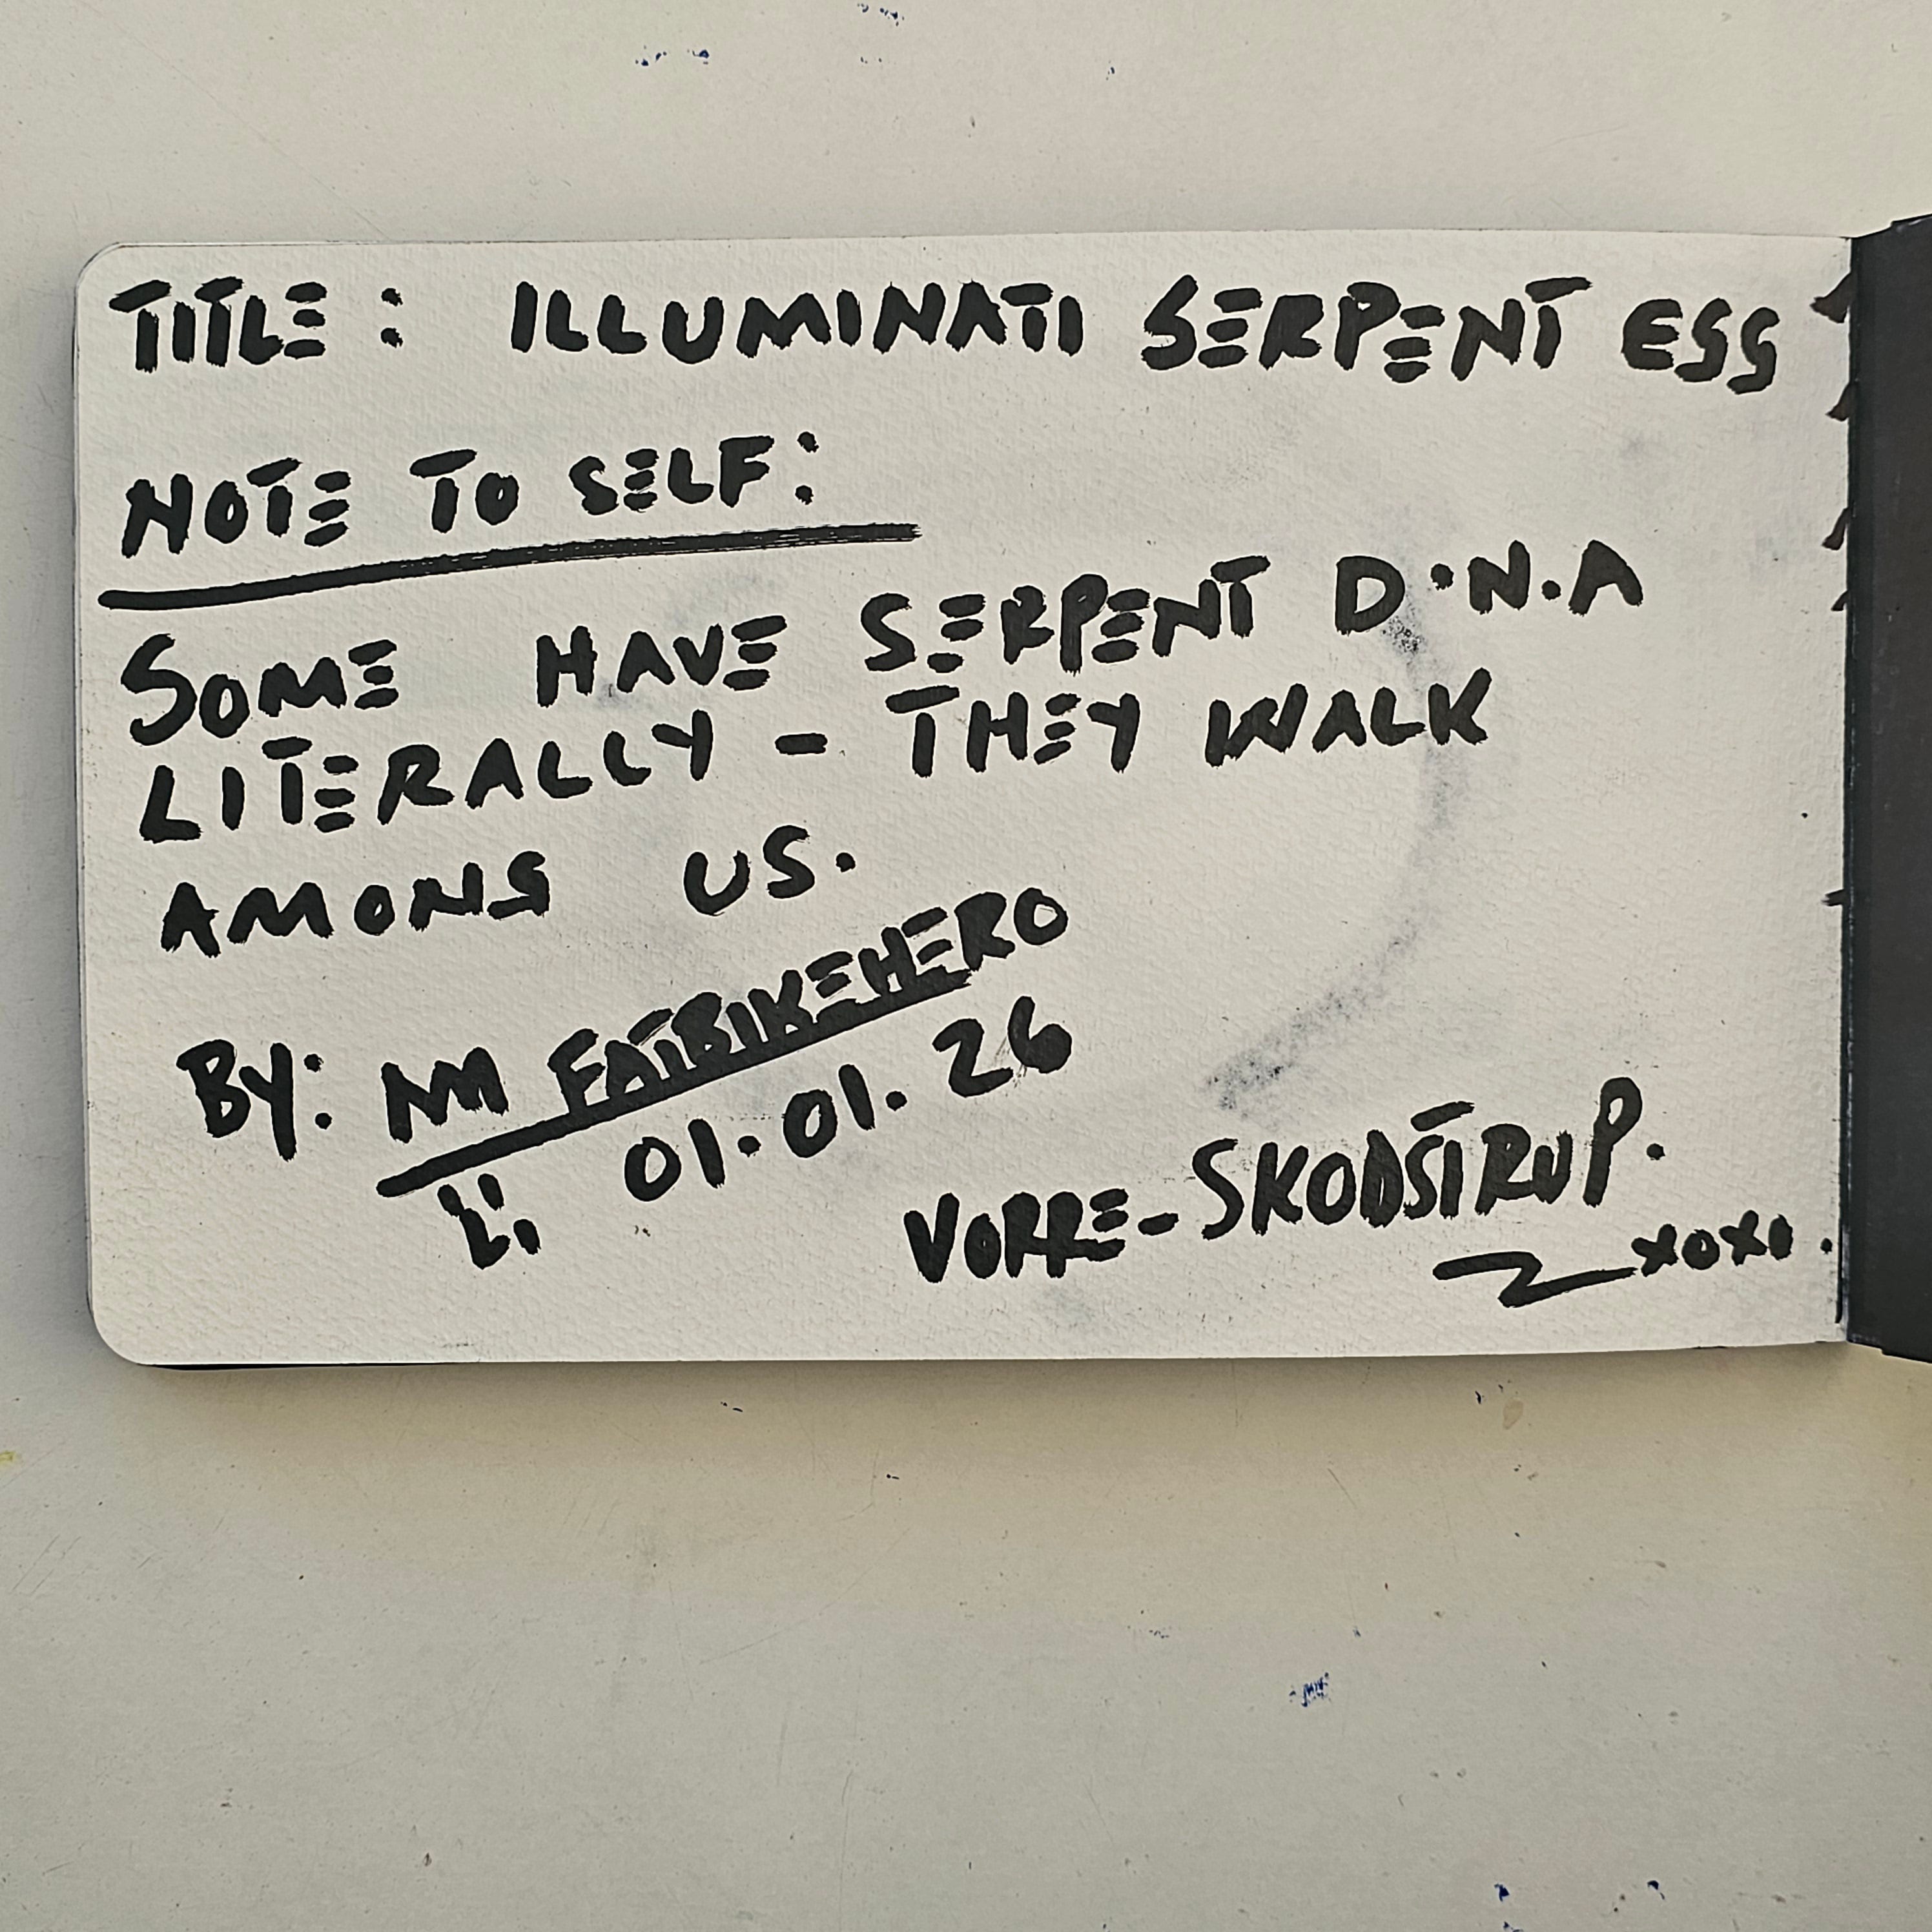 TITLE: ILLUMINATI SERPENT ESS
NOTE TO SELF:
SOME HAVE SERPENT D.N.A
LITERALLY - THEY WALK
AMONG US.
BY: FATBIKEHERO
01.01.26
VORRE-SKODSTRUP.
xoxo.